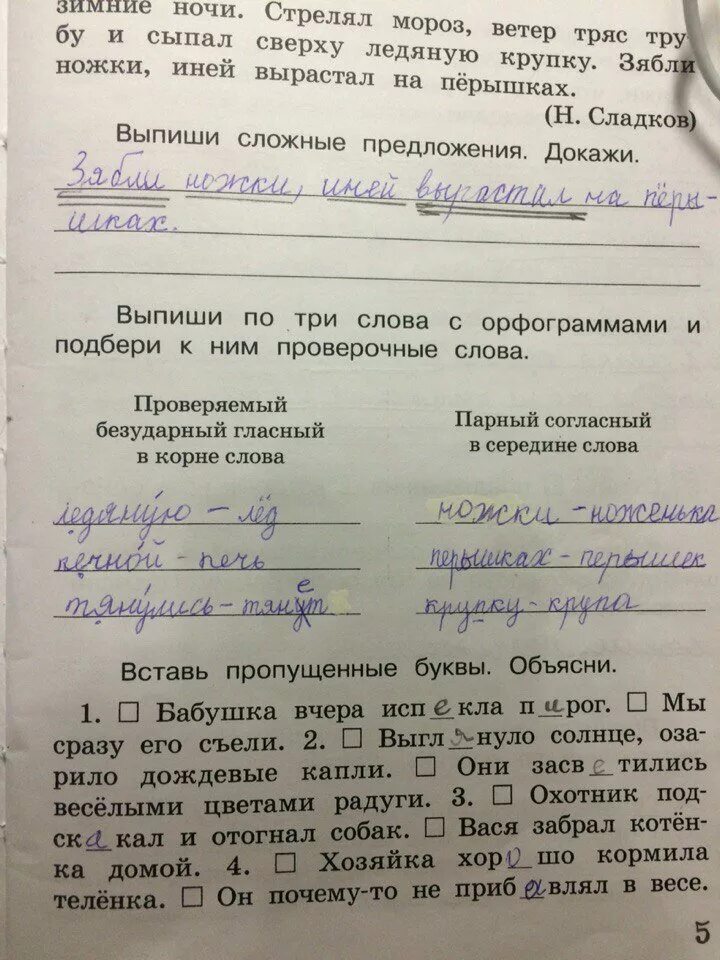 зимние ночи. Стрелял мороз, ветер тряс тру-
бу и сыпал сверху ледяную крупку. Зябли
ножки, иней вырастал на пёрышках.
(Н. Сладков)
Выпиши сложные предложения. Докажи.
Зябли ножки, иней вырастал на пёры-
шках.
Выпиши по три слова с орфограммами и
подбери к ним проверочные слова.
Проверяемый
безударный гласный
в корне слова
Парный согласный
в середине слова
ледяну́ю – лёд
ножки – ноженька
печно́й – печь
перышках – перышек
тяну́лись – тянет
крупку – крупа
Вставь пропущенные буквы. Объясни.
1. □ Бабушка вчера исп е кла п и рог. □ Мы
сразу его съели. 2. □ Выгл я нуло солнце, оза-
рило дождевые капли. □ Они засв е тились
весёлыми цветами радуги. 3. □ Охотник под-
ск а кал и отогнал собак. □ Вася забрал котён-
ка домой. 4. □ Хозяйка хор о шо кормила
телёнка. □ Он почему-то не приб а влял в весе.
5